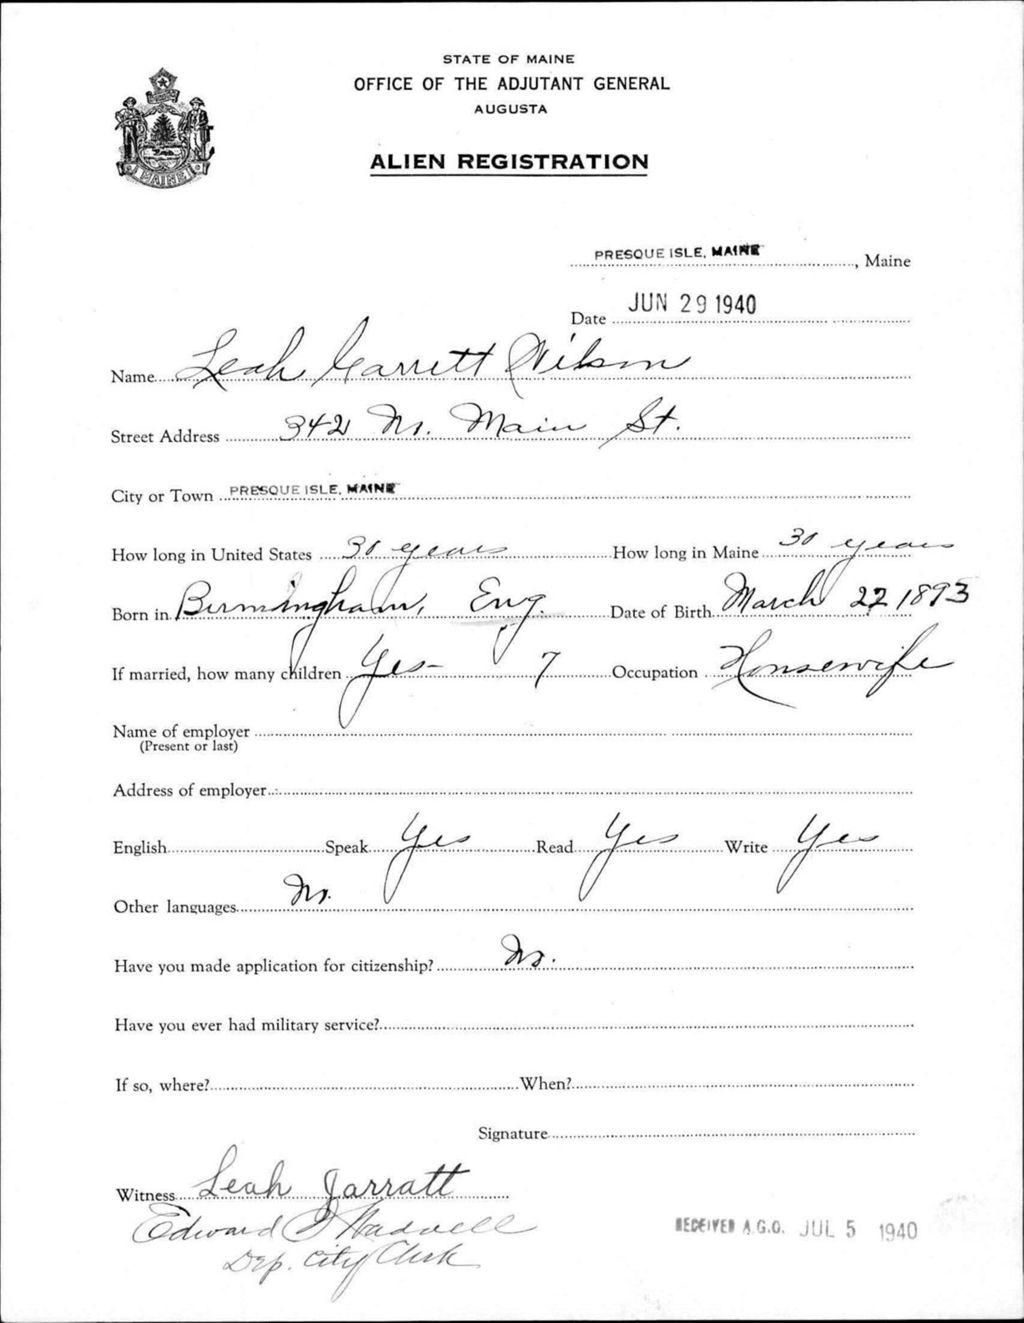 STATE OF MAINE
OFFICE OF THE ADJUTANT GENERAL
AUGUSTA
ALIEN REGISTRATION
MAINE
PRESQUE ISLE, MAINE, Maine
Date JUN 29 1940
Name Leah Garrett Wilson
Street Address 342 No. Main St.
City or Town PRESQUE ISLE, MAINE
How long in United States 30 years How long in Maine 30 years
Born in Birmingham, Eng. Date of Birth March 22 1893
If married, how many children Yes - 7 Occupation Housewife
Name of employer
(Present or last)
Address of employer
English Speak Yes Read Yes Write Yes
Other languages No.
Have you made application for citizenship? No.
Have you ever had military service?
If so, where? When?
Signature
Witness Leah Jarratt
Edward
Dep. City Clerk
RECEIVED A.G.O. JUL 5 1940